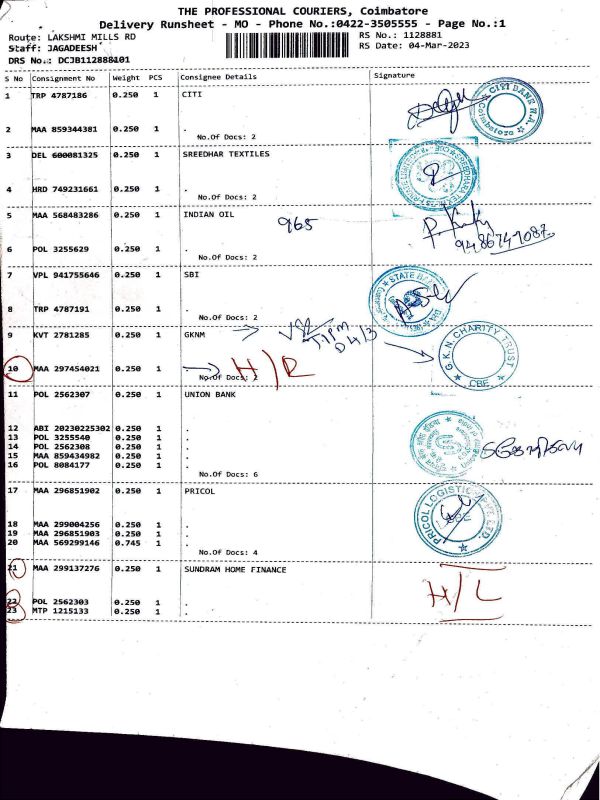 THE PROFESSIONAL COURIERS, Coimbatore
Delivery Runsheet - MO - Phone No.:0422-3505555 - Page No.:1
Route: LAKSHMI MILLS RD RS No.: 1128881
Staff: JAGADEESH RS Date: 04-Mar-2023
DRS No.: DCJB112888101
S No Consignment No Weight PCS Consignee Details Signature
1 TRP 4787186 0.250 1 CITI
CITI BANK N.A. Coimbatore
2 MAA 859344381 0.250 1 .
No.Of Docs: 2
3 DEL 600081325 0.250 1 SREEDHAR TEXTILES
4 HRD 749231661 0.250 1 .
No.Of Docs: 2
5 MAA 568483286 0.250 1 INDIAN OIL
965
6 POL 3255629 0.250 1 .
No.Of Docs: 2
7 VPL 941755646 0.250 1 SBI
STATE BANK
8 TRP 4787191 0.250 1 .
No.Of Docs: 2
9 KVT 2781285 0.250 1 GKNM
G.K.N. CHARITY TRUST CBE
10 MAA 297454021 0.250 1 H/R
No.Of Docs: 2
11 POL 2562307 0.250 1 UNION BANK
12 ABI 20230225302 0.250 1 .
13 POL 3255540 0.250 1 .
14 POL 2562308 0.250 1 .
15 MAA 859434982 0.250 1 .
16 POL 8084177 0.250 1 .
No.Of Docs: 6
17 MAA 296851902 0.250 1 PRICOL
PRICOL LOGISTICS PVT. LTD.
18 MAA 299004256 0.250 1 .
19 MAA 296851903 0.250 1 .
20 MAA 569299146 0.745 1 .
No.Of Docs: 4
21 MAA 299137276 0.250 1 SUNDRAM HOME FINANCE
H/L
22 POL 2562303 0.250 1 .
23 MTP 1215133 0.250 1 .